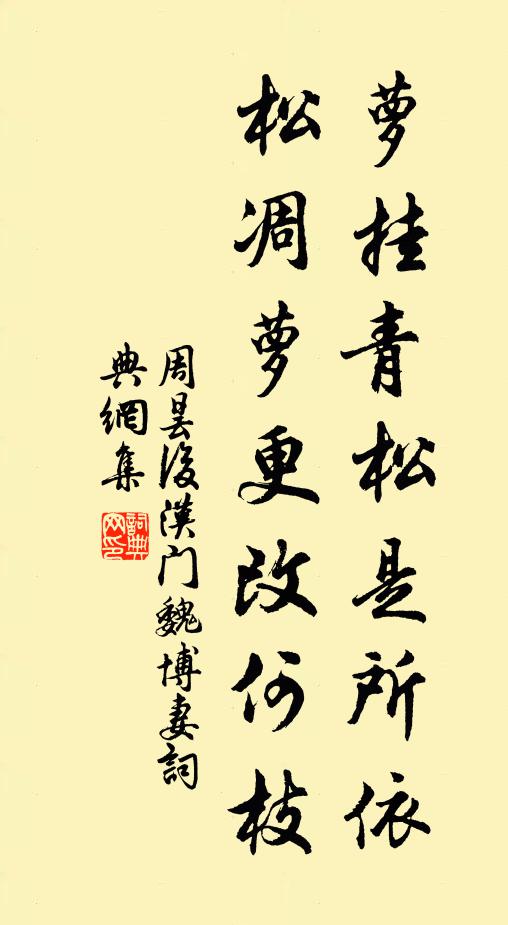 萝挂青松是所依
松凋萝更改何枝
周昙後漢门魏博妻詞
典網集
詞典网印